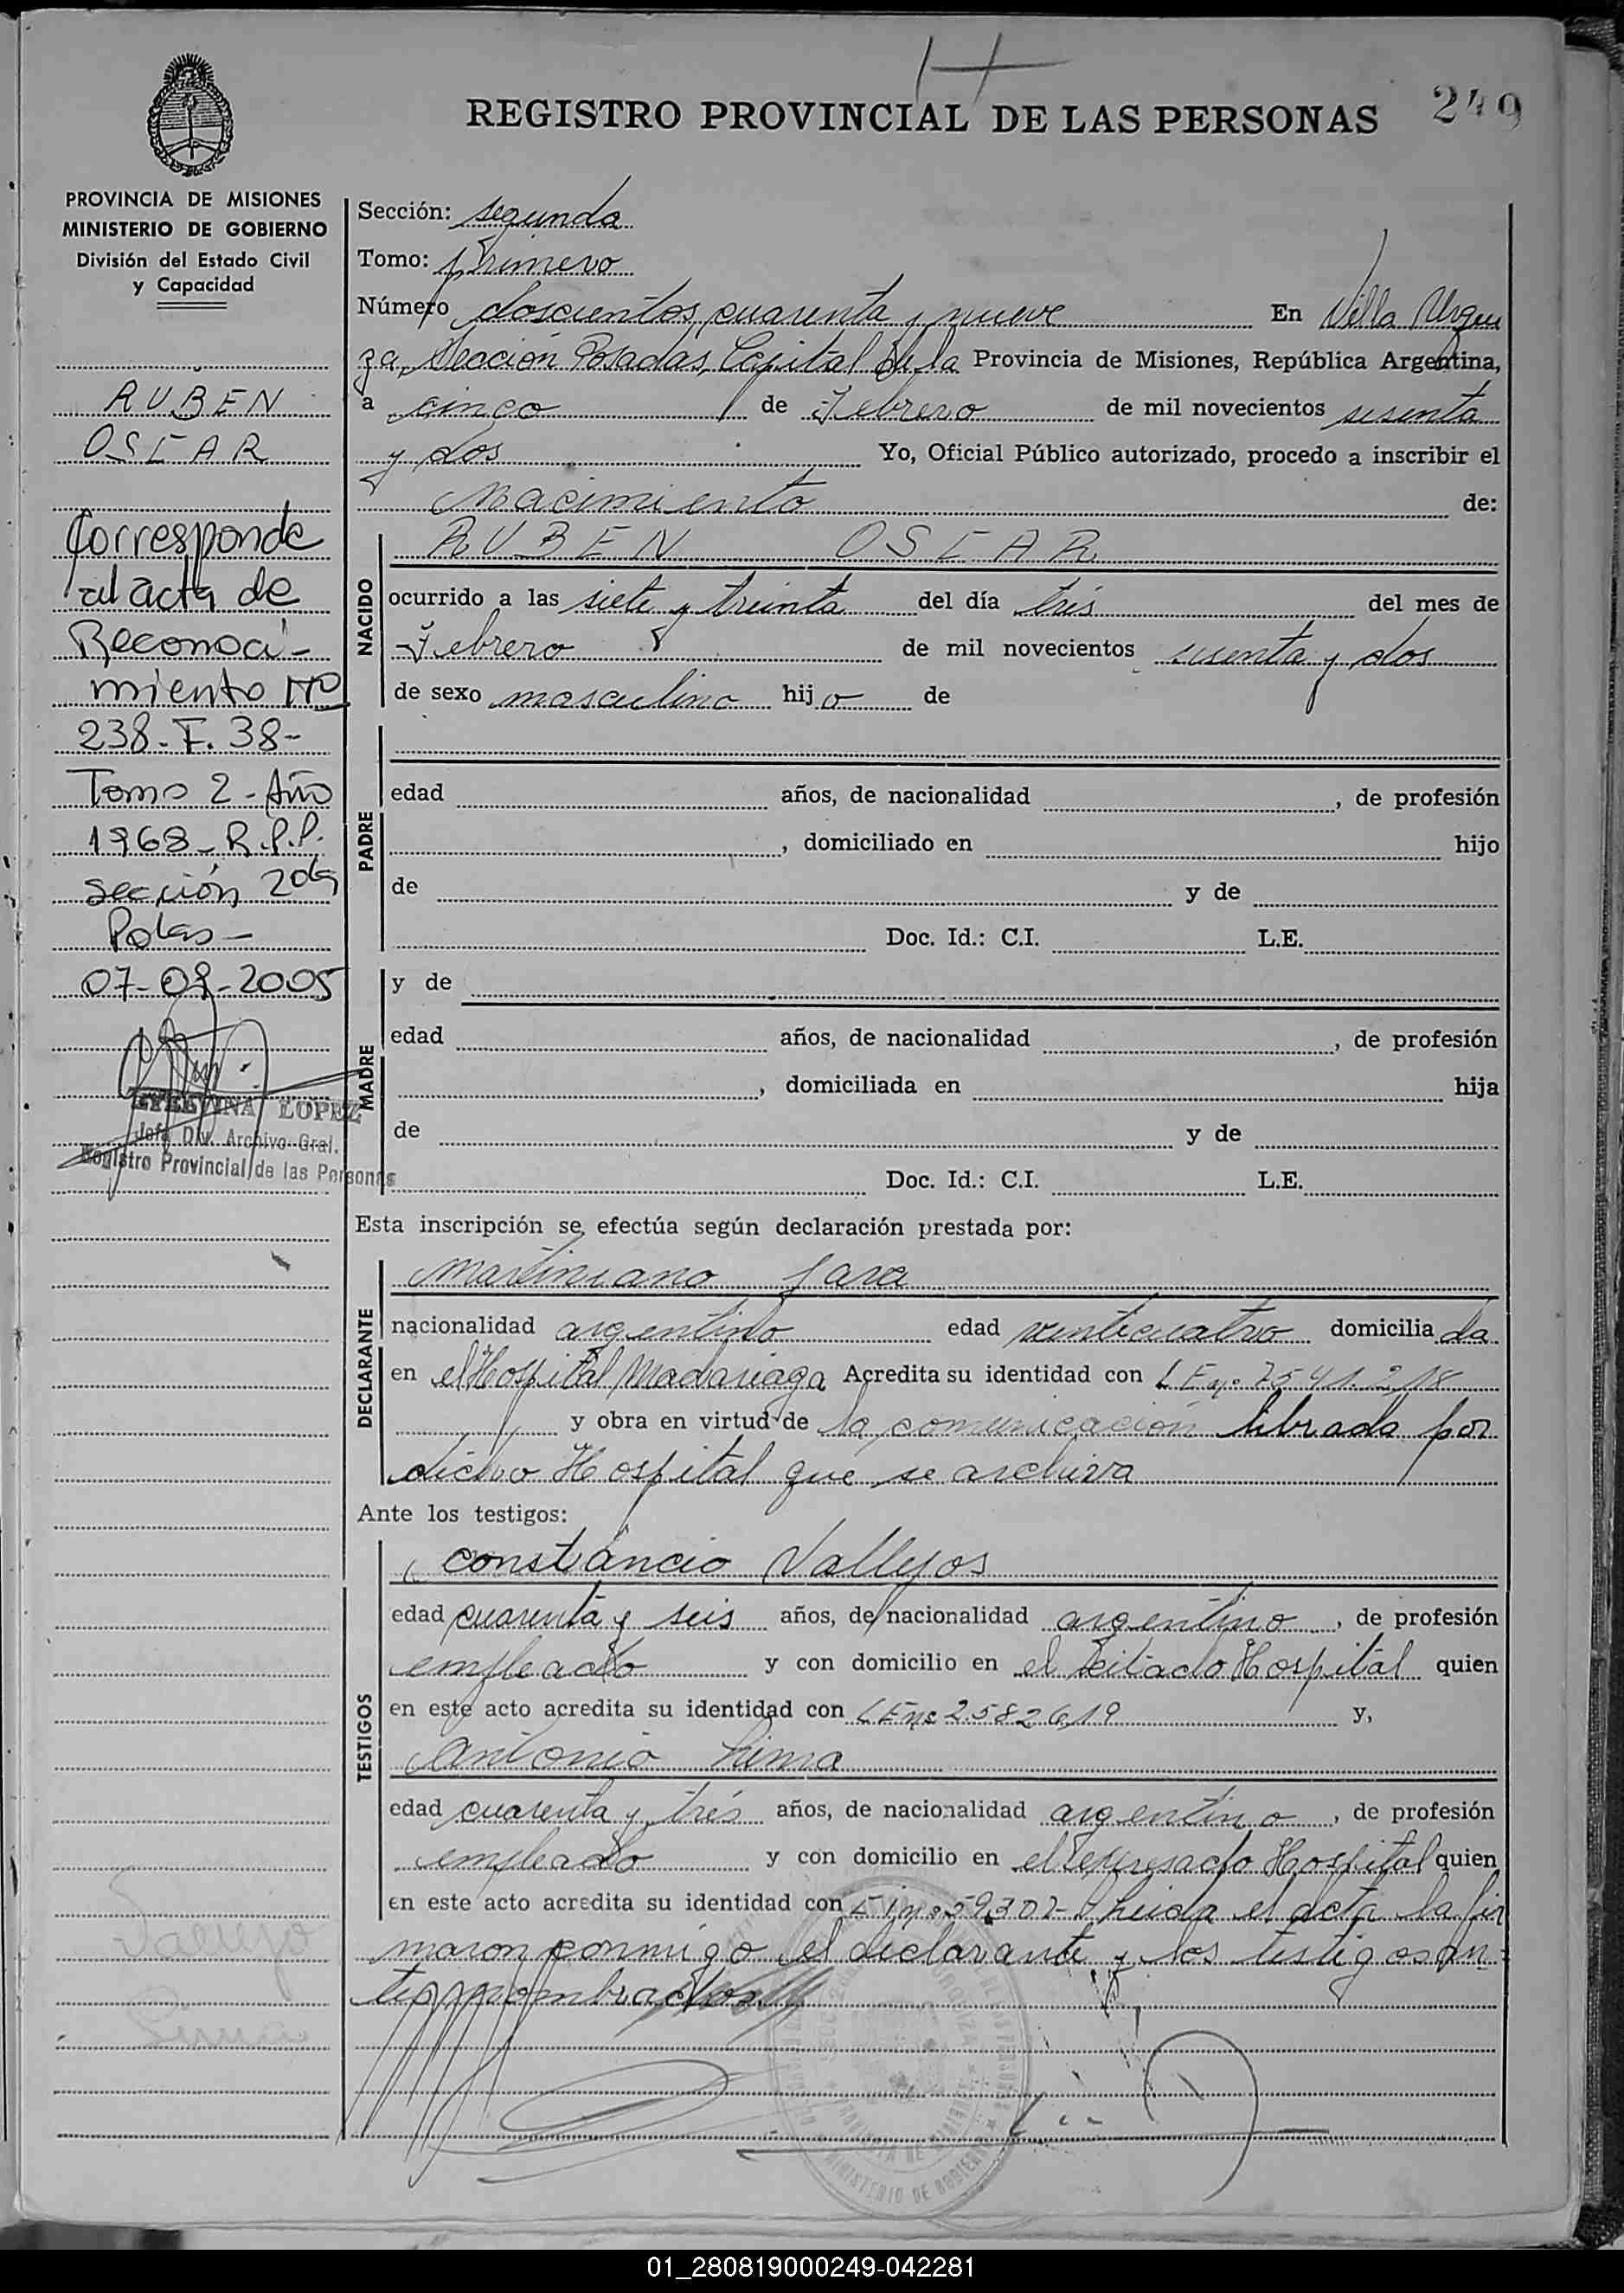 REGISTRO PROVINCIAL DE LAS PERSONAS
249
PROVINCIA DE MISIONES
MINISTERIO DE GOBIERNO
División del Estado Civil
y Capacidad
RUBEN
OSCAR
Corresponde
al acta de
Reconoci-
miento Nº
238-F. 38-
Tomo 2-Año
1968-R.P.P.
sección 2da
Pdas-
07-09-2005
LOPEZ
Jefa Div. Archivo Gral.
Registro Provincial de las Personas
Sección: segunda
Tomo: primero
Número doscientos cuarenta y nueve En Villa Urqui
za, Sección Posadas, Capital de la Provincia de Misiones, República Argentina,
a cinco de Febrero de mil novecientos sesenta
y dos Yo, Oficial Público autorizado, procedo a inscribir el
Nacimiento de:
NACIDO
RUBEN OSCAR
ocurrido a las siete y treinta del día trés del mes de
Febrero de mil novecientos sesenta y dos
de sexo masculino hijo de
PADRE
edad años, de nacionalidad , de profesión
, domiciliado en hijo
de y de
Doc. Id.: C.I. L.E.
MADRE
y de
edad años, de nacionalidad , de profesión
, domiciliada en hija
de y de
Doc. Id.: C.I. L.E.
Esta inscripción se efectúa según declaración prestada por:
DECLARANTE
Martiniano Jara
nacionalidad argentino edad veinticuatro domiciliado
en el Hospital Madariaga Acredita su identidad con L E nº 7541.218
y obra en virtud de la comunicación librada por
dicho Hospital que se archiva
Ante los testigos:
TESTIGOS
Constáncio Vallejos
edad cuarenta y seis años, de nacionalidad argentino, de profesión
empleado y con domicilio en el citado Hospital quien
en este acto acredita su identidad con L E nº 2582619 y,
Antonio Lima
edad cuarenta y trés años, de nacionalidad argentino, de profesión
empleado y con domicilio en el expresado Hospital quien
en este acto acredita su identidad con Leida el acta la fir
maron conmigo el declarante y los testigos an-
tes nombrados
01_280819000249-042281